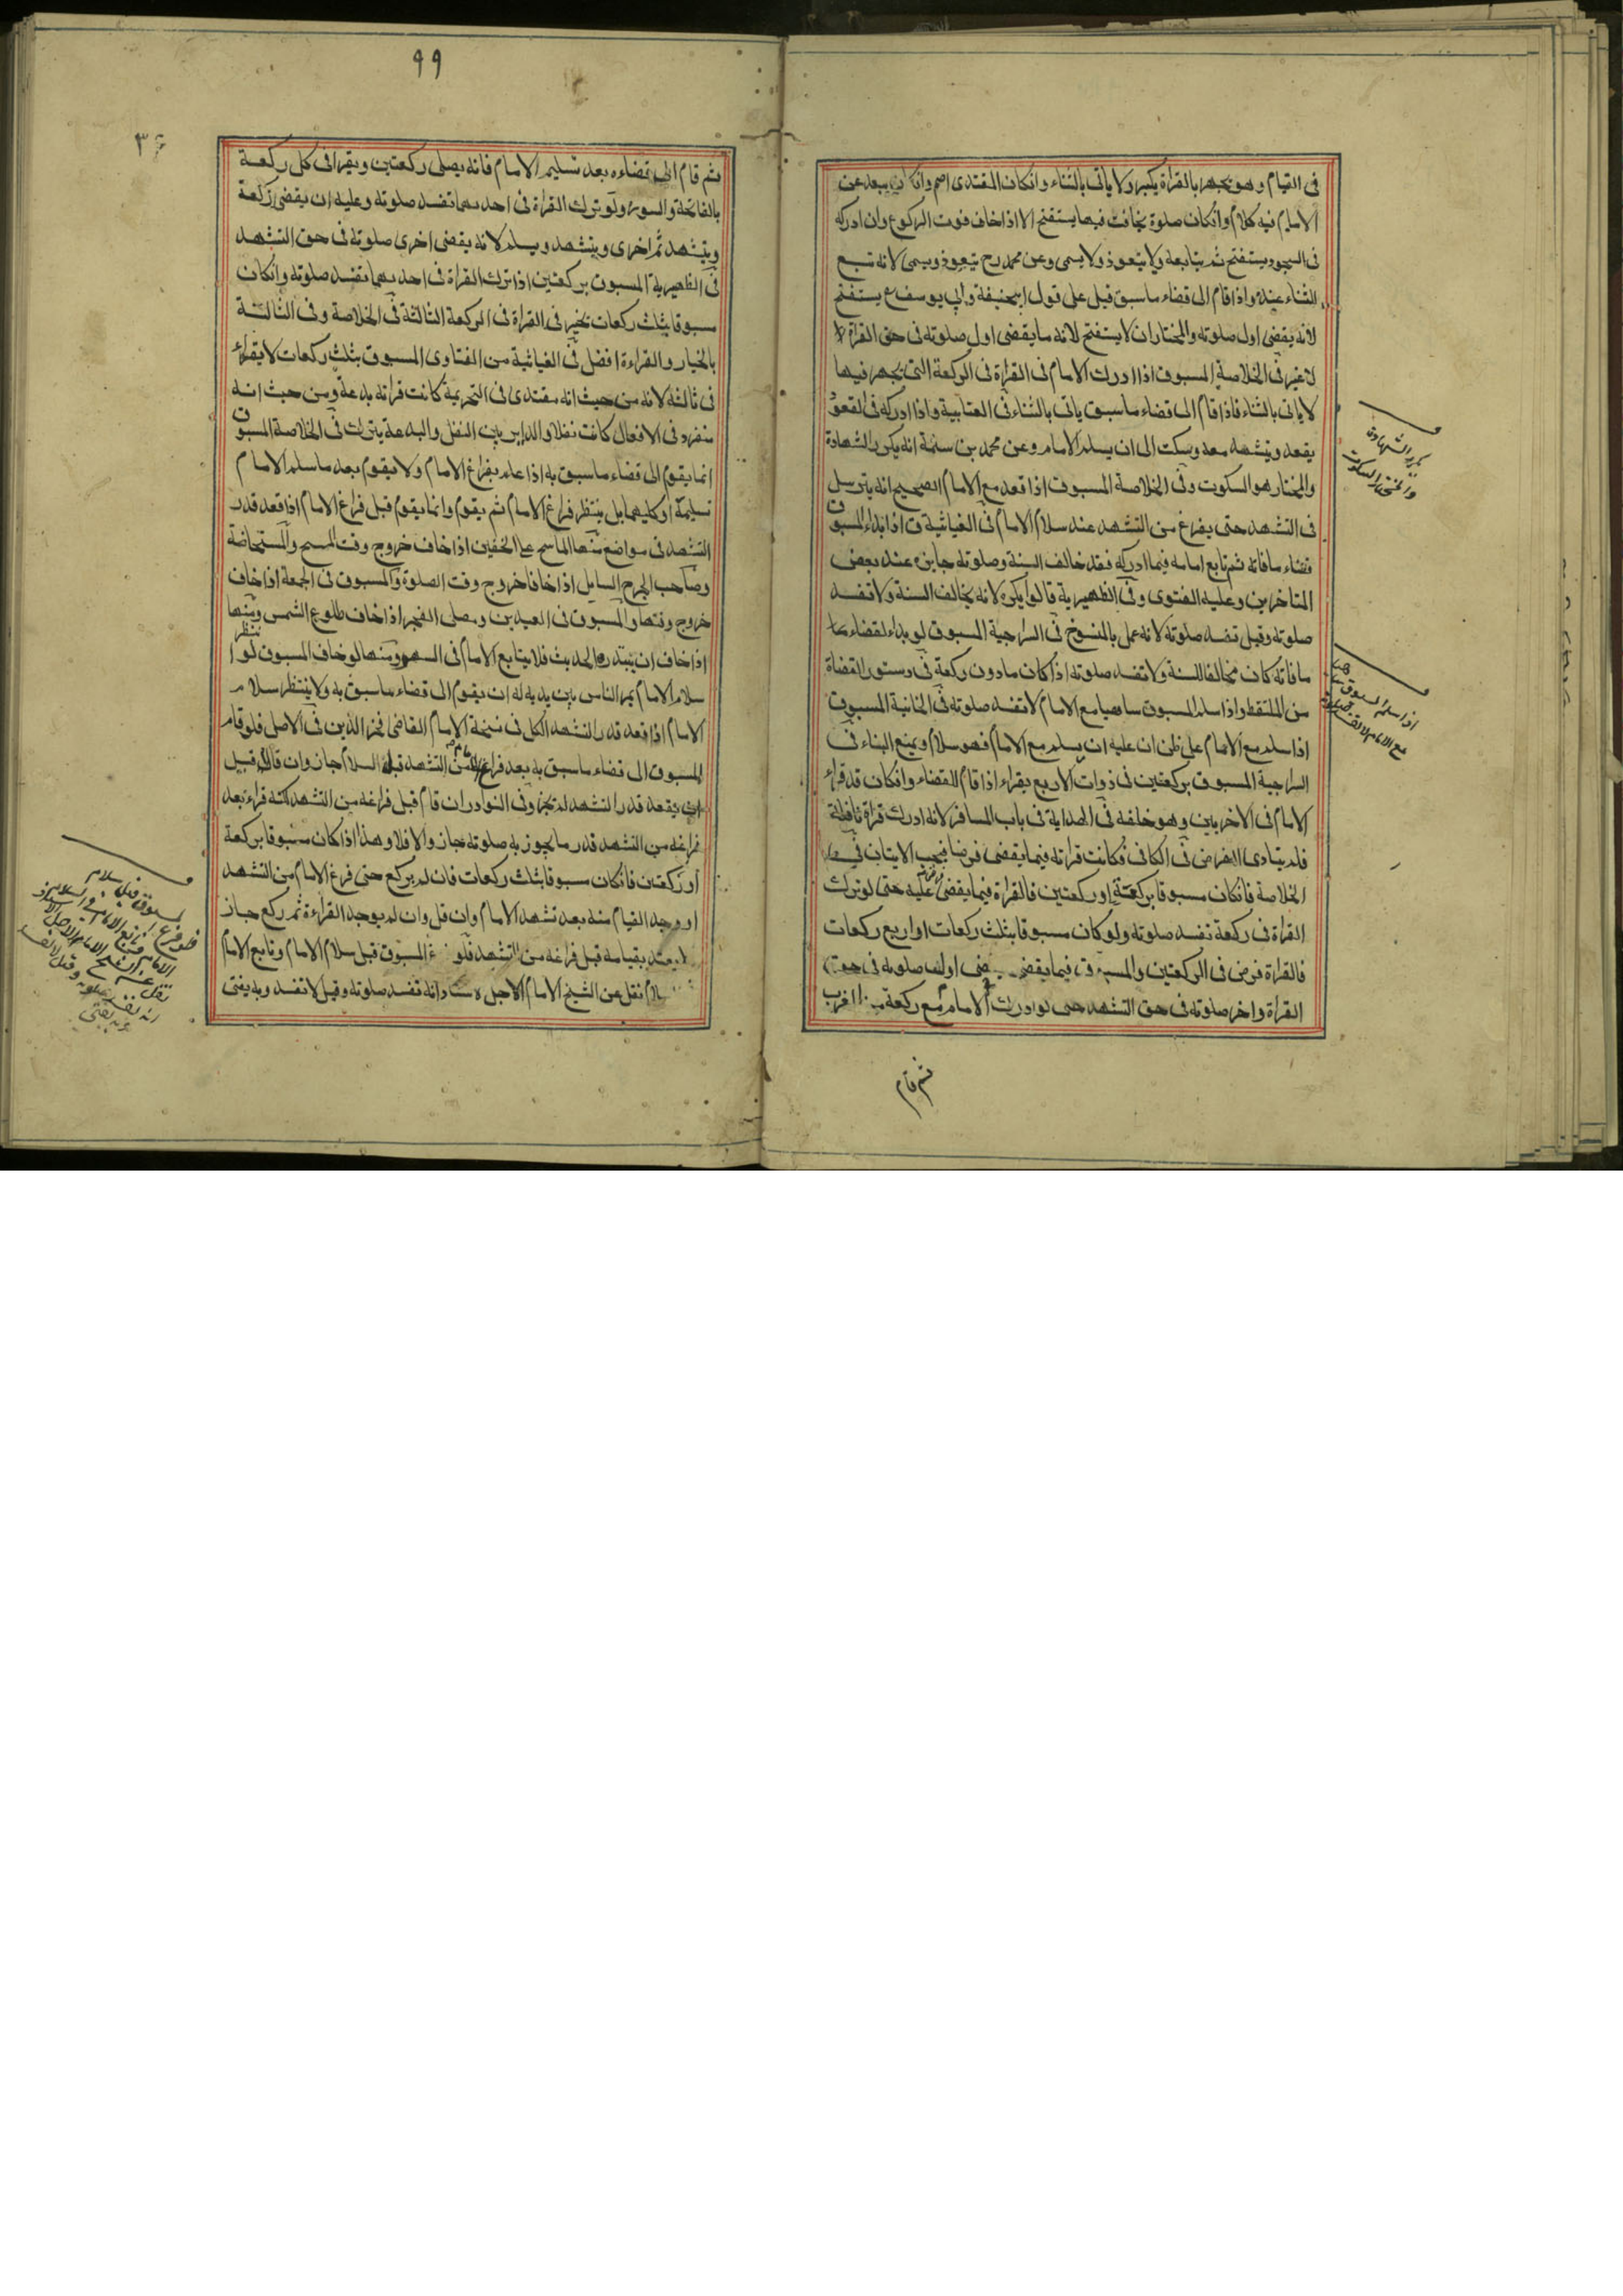 فى القيام وهو يجهر بالقراة يكبر ولا ياتى بالثناء وانكان المقتدى اصم وانكان يبعد عن
الامام فيه كلام وانكان صلوة يخافت فيها يستفتح الا اذا خاف فوت الركوع وان ادركه
فى السجود يستفتح ثم يتابعه ولا يتعوذ ولا يسمى وعن محمد رح يتعوذ ويسمى لانه تبع
الثناء عنده واذا قام الى قضاء ما سبق قيل على قول ابيحنيفة وابي يوسف يستفتح
لانه يقضى اول صلوته والمختار ان لا يستفتح لانه ما يقضى اول صلوته فى حق القراة لا
لا غير فى الخلاصة المسبوق اذا ادرك الامام فى القراة فى الركعة التى يجهر فيها
لا ياتى بالثناء فاذا قام الى قضاء ما سبق ياتى بالثناء فى العتابية واذا ادركه فى القعود
يقعد ويتشهد معه ويسكت الى ان يسلم الامام وعن محمد بن سلمة انه يكرر الشهادة
والمختار هو السكوت وفى الخلاصة المسبوق اذا قعد مع الامام الصحيح انه يترسل
فى التشهد حتى يفرغ من التشهد عند سلام الامام فى الغياثية اذا بداء المسبوق
قضاء ما فاته ثم تابع امامه فيما ادركه فقد خالف السنة وصلوته جايزة عند بعض
المتاخرين وعليه الفتوى وفى الظهيرية قالوا يكره لانه يخالف السنة ولا تفسد
صلوته وقيل تفسد صلوته لانه عمل بالمنسوخ فى السراجية المسبوق لو بداء لقضاء
ما فاته كان مخالفا للسنة ولا تفسد صلوته اذا كان مادون ركعة فى دستور القضاة
من الملتقط واذا سلم المسبوق ساهيا مع الامام لا تفسد صلوته فى الخانية المسبوق
اذا سلم مع الامام على ظن ان عليه ان يسلم مع الامام فهو سلام ويمنع البناء فى
السراجية المسبوق بركعتين فى ذوات الاربع يقراء اذا قام للقضاء وانكان قد قراء
الامام فى الاخريين وهو خلفه فى الهداية فى باب المسافر لانه ادرك قراة نافلة
فلم يتادى الفرض فى الكافى فكانت قراته فيما يقضى فرضا فيجب الاتيان
الخلاصة فانكان مسبوقا بركعة او ركعتين فالقراة فيما يقضى عليه حتى لو ترك
القراة فى ركعة تفسد صلوته ولو كان مسبوقا بثلث ركعات او اربع ركعات
فالقراة فرض فى الركعتين والمسبوق فيما يقضى اول صلوته فى حق
القراة واخر صلوته فى حق التشهد حتى لو ادرك الامام مع ركعة
ثم قام
يكرر الشهادة
والمختار السكوت
اذا سلم المسبوق
مع الامام لا تفسد
٩٩
ثم قام الى قضاءه بعد تسليم الامام فانه يصلى ركعتين ويقرا فى كل ركعة
بالفاتحة والسورة ولو ترك القراة فى احديهما تفسد صلوته وعليه ان يقضى ركعة
ويتشهد ثم اخرى ويتشهد ويسلم لانه يقضى اخرى صلوته فى حق التشهد
فى الظهيرية المسبوق بركعتين اذا ترك القراة فى احديهما تفسد صلوته وانكان
مسبوقا بثلث ركعات يخير فى القراة فى الركعة الثالثة فى الخلاصة وفى الثالثة
بالخيار والقراءة افضل فى الغياثية من الفتاوى المسبوق بثلث ركعات لا يقراء
فى ثالثه لانه من حيث انه مقتدى فى التحريمة كانت قراته بدعة ومن حيث انه
منفرد فى الافعال كانت نفلا والداير بين النفل والبدعة يترك فى الخلاصة المسبوق
انما يقوم الى قضاء ما سبق به اذا علم بفراغ الامام ولا يقوم بعد ما سلم الامام
تسليمة او كليهما بل ينتظر فراغ الامام ثم يقوم وانما يقوم قبل فراغ الامام اذا قعد قدر
التشهد فى مواضع منها الماسح على الخفين اذا خاف خروج وقت المسح والمستحاضة
وصاحب الجرح السايل اذا خافا خروج وقت الصلوة والمسبوق فى الجمعة اذا خاف
خروج وقتها والمسبوق فى العيدين ومصلى الفجر اذا خاف طلوع الشمس ومنها
اذا خاف ان يبتدره الحدث فلا يتابع الامام فى السهو ومنها لو خاف المسبوق لو ينتظر
سلام الامام يمر الناس بين يديه له ان يقوم الى قضاء ما سبق به ولا ينتظر سلام
الامام اذا قعد قدر التشهد الكل فى نسخة الامام القاضى فخر الدين فى الاصل فلو قام
المسبوق الى قضاء ما سبق به بعد فراغ الامام من التشهد قبل السلام جاز وان قام قبل
ان يقعد قدر التشهد لم يجز وفى النوادر ان قام قبل فراغه من التشهد لكنه قراء بعد
فراغه من التشهد قدر ما يجوز به صلوته جاز والا فلا وهذا اذا كان مسبوقا بركعة
او ركعتين فانكان مسبوقا بثلث ركعات فان لم يركع حتى فرغ الامام من التشهد
او وجد القيام منه بعد تشهد الامام وان قل وان لم يوجد القراءة ثم ركع جاز
لا يعتد بقيامه قبل فراغه من التشهد فلو فرغ المسبوق قبل سلام الامام وتابع الامام
نقل عن الشيخ الامام الاجل الاستاد انه تفسد صلوته وقيل لا تفسد وبه يفتى